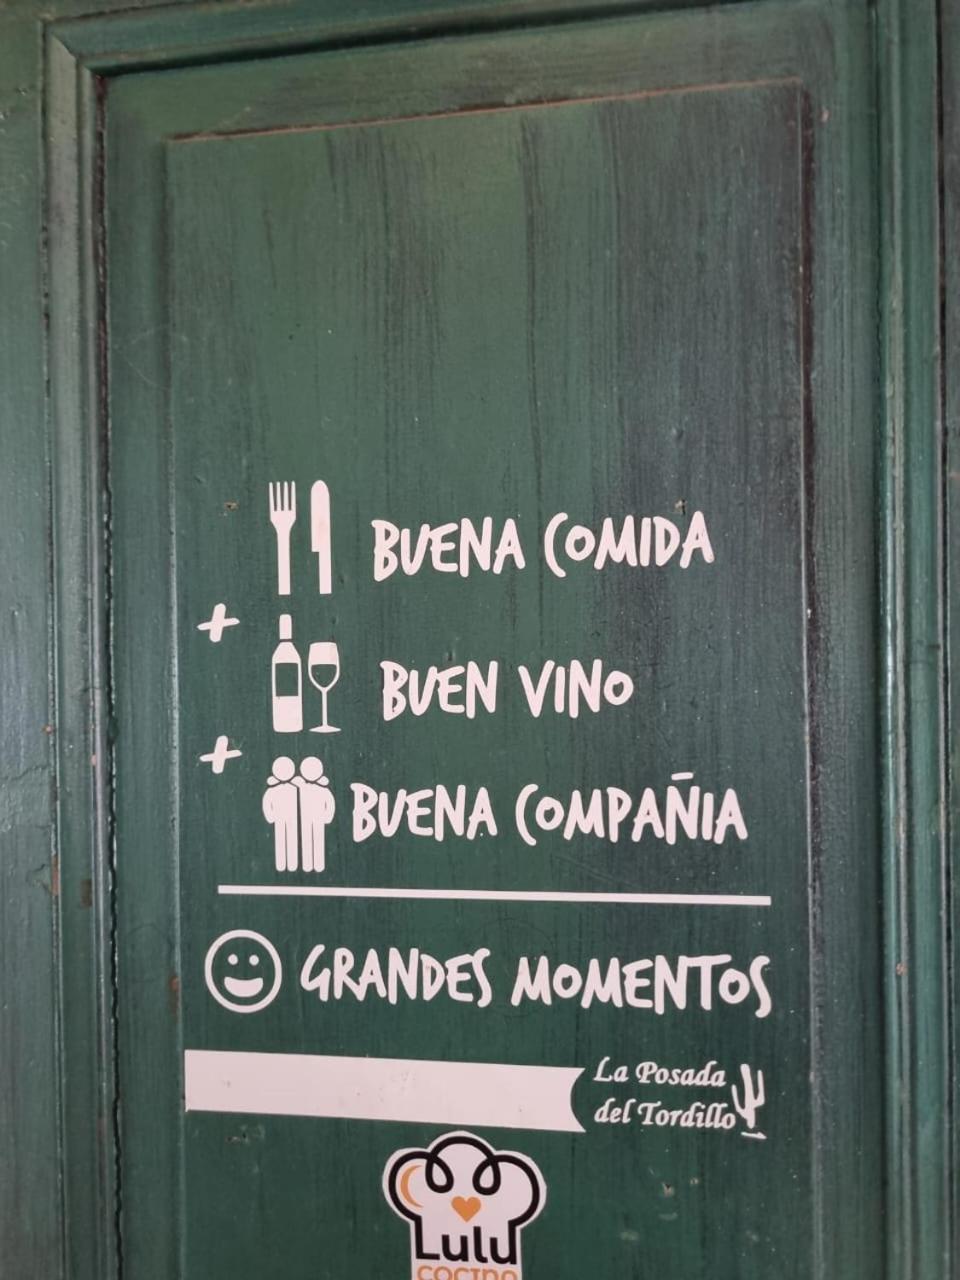 BUENA COMIDA
+
BUEN VINO
+
BUENA COMPAÑIA
GRANDES MOMENTOS
La Posada
del Tordillo
Lulu
cocina